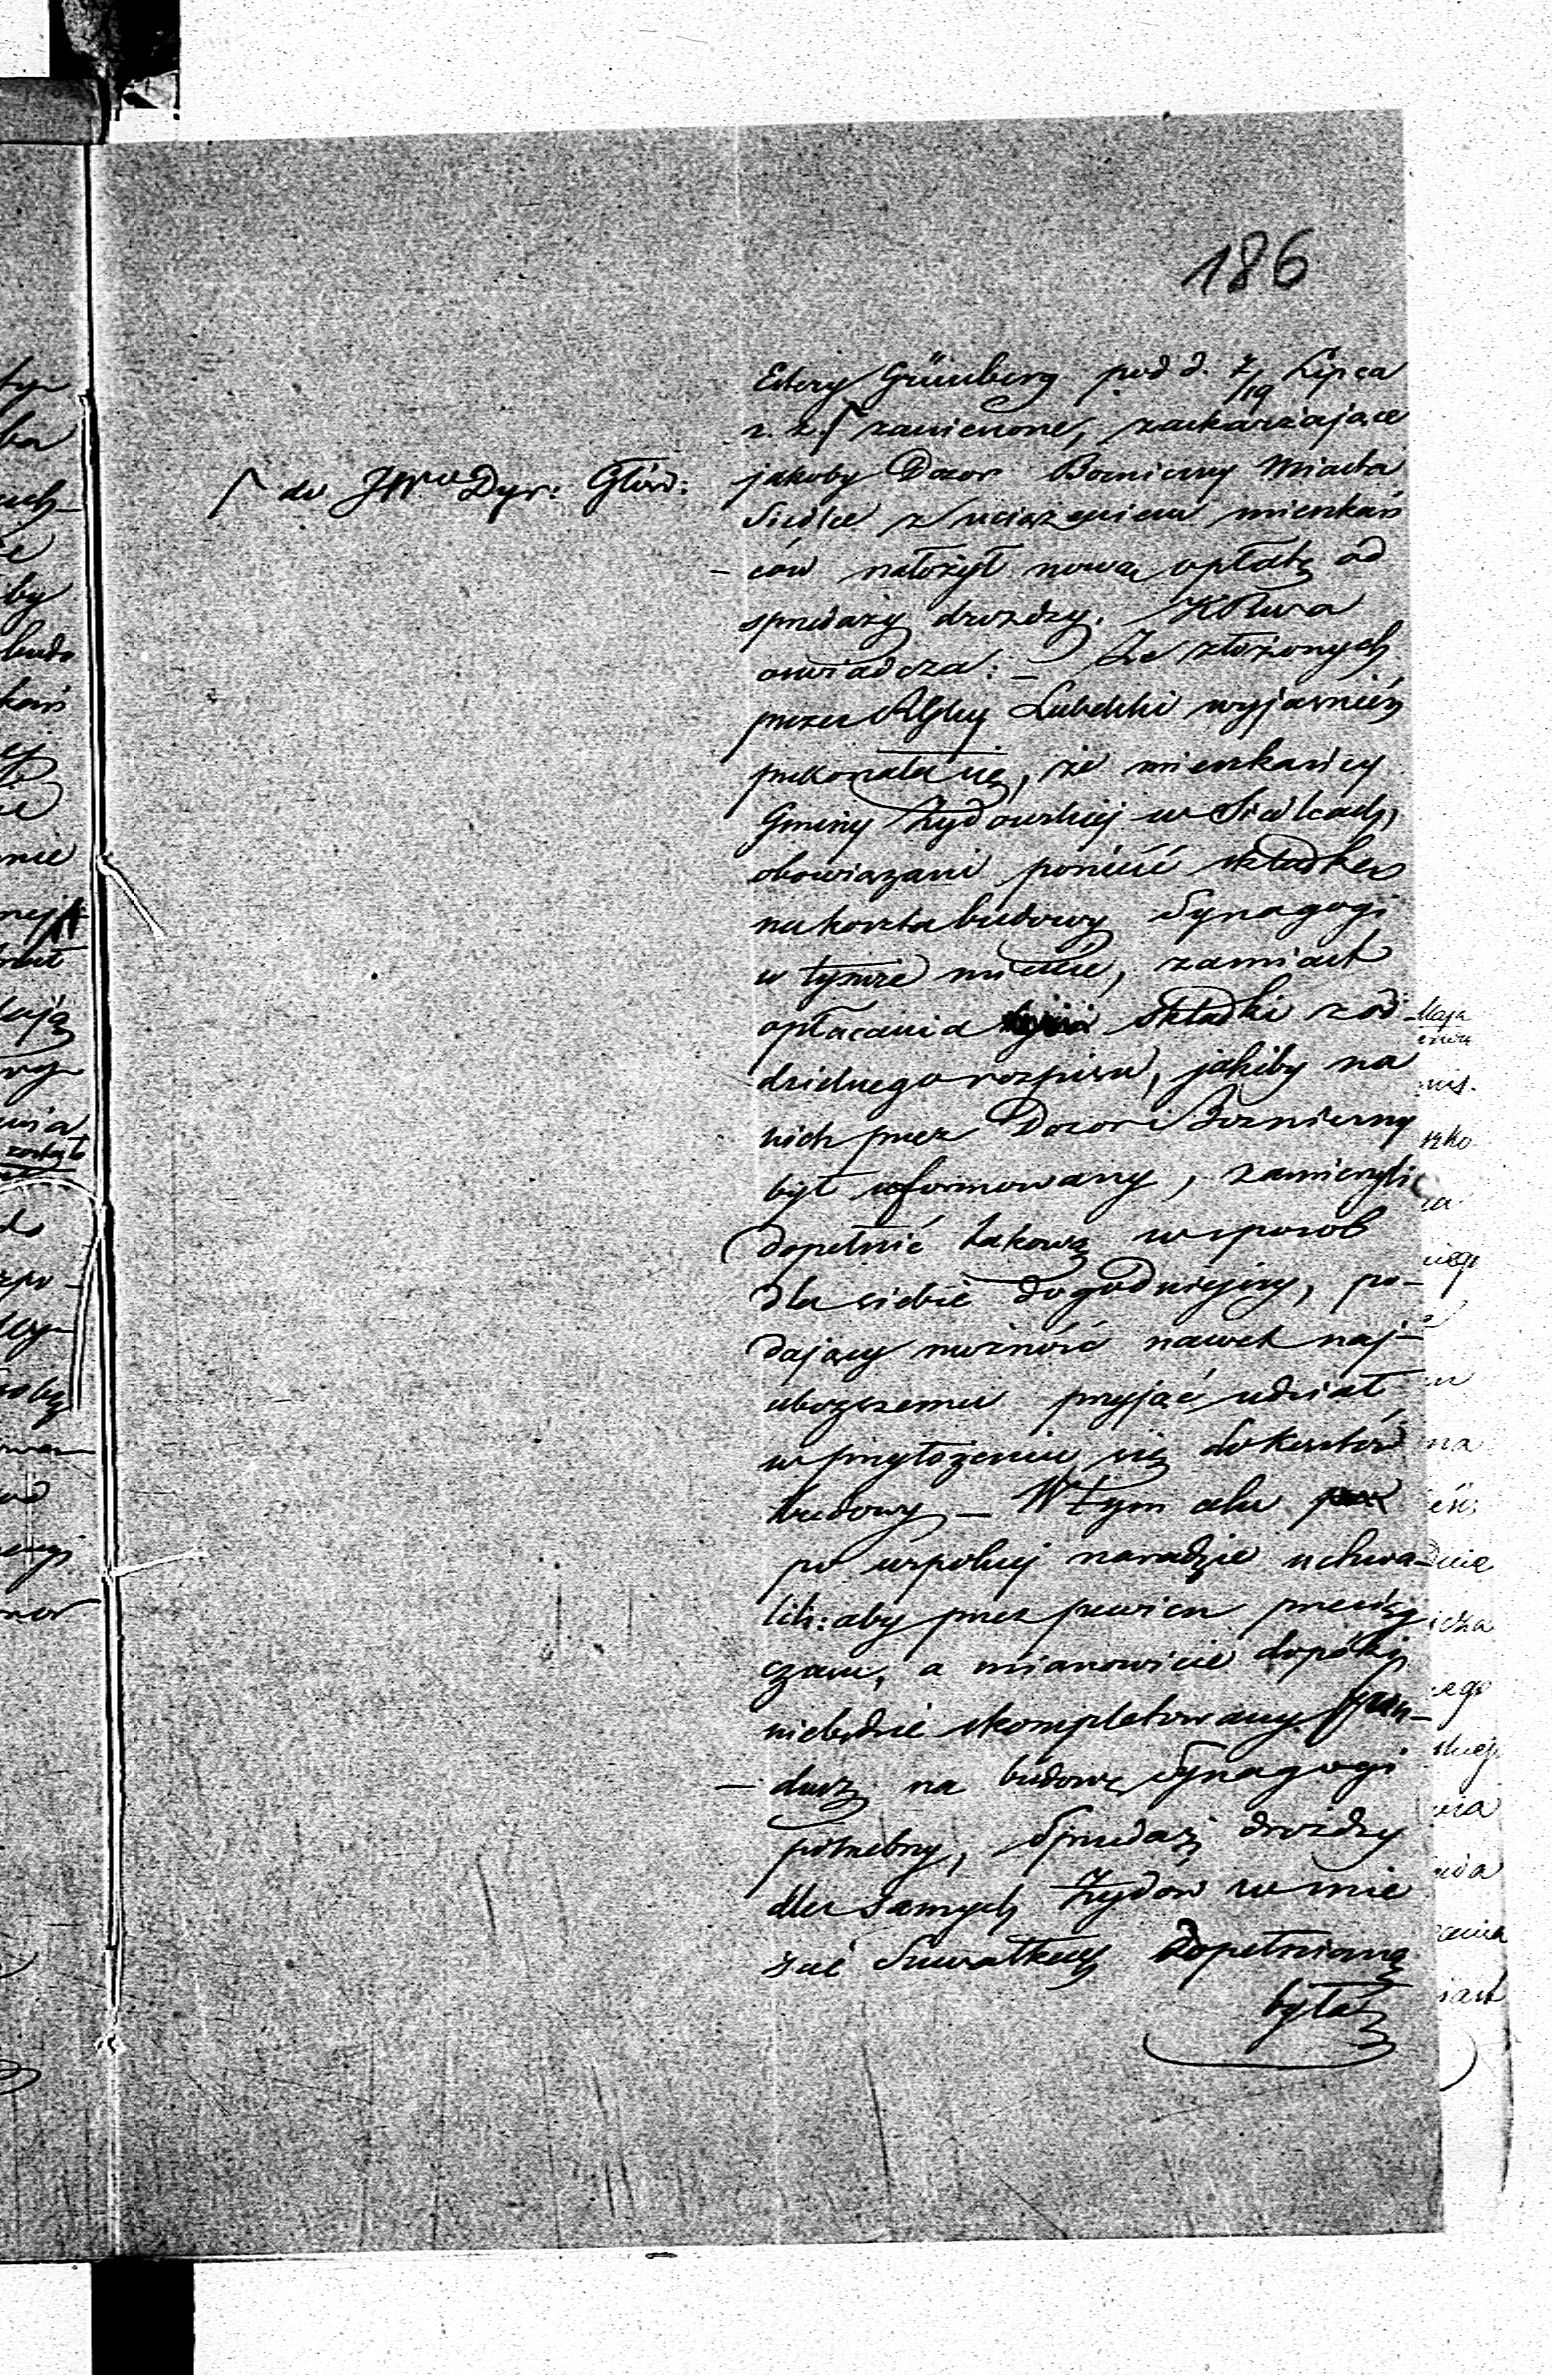 186
Estery Grünberg pod d. 7/19 Lipca
r. z. zaniesione, zaskarżające
⌈ do JWo Dyr: Głów:
jakoby Dozor Bożniczny Miasta
Siedlce z uciążeniem mieszkań
ców nałożył nową opłatę od
sprzedaży drożdzy. 
oswiadcza: – Ze złożonych
przez Lubelski wyjasnień
przekonała się, że mieszkańcy
Gminy Żydowskiej w Siedlcach,
obowiązani ponieść składkę
na koszta budowy Synagogi
w tymże mieście, zamiast
opłacania składki z od
dzielnego rozpisu, jakiby na
nich przez Dozor Bożniczny
był uformowany, zamierzyli
dopełnić takową w sposob
dla siebie dogodniejszy, po-
dający możność nawet naj-
uboższemu przyjąć udział
w przyłożeniu się do kosztów
budowy – W tym celu
po wspolnej naradzie uchwa-
lili: aby przez pewien przeciąg
czasu, a mianowicie dopóki
niebędzie skompletowany fun-
dusz na budowę Synagogi
potrzebny, Sprzedaż drożdzy
dla samych Żydów w mie
scie Suwałkach dopełnianą
była